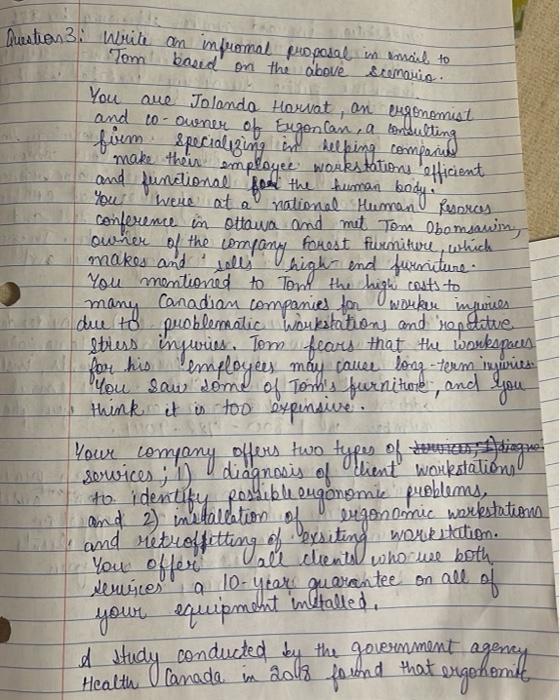 Question 3: Write an infromal proposal in email to
Tom based on the above scenario.
You are Jolanda Horvat, an ergonomist
and co-owner of ErgonCan, a consulting
firm specializing in helping companies
make their employee workstations efficient
and functional for the human body.
You were at a national Human Resorces
conference in Ottawa and met Tom Obomsawin,
owner of the company Forest Furniture, which
makes and sells high-end furniture.
You mentioned to Tom the high costs to
many Canadian companies for worker injuries
due to problematic workstations and repetitive
stress injuries. Tom fears that the workspaces
for his employees may cause long-term injuries.
You saw some of Tom's furniture, and you
think it is too expensive.
Your company offers two types of services; 1) diagno
services; 1) diagnosis of client workstations
to identify possible ergonomic problems,
and 2) installation of ergonomic workstations
and retroffitting of exsiting workstation.
You offer all clients who use both
services a 10-year guarantee on all of
your equipment installed.
A study conducted by the government agency
Health Canada in 2018 found that ergonomic